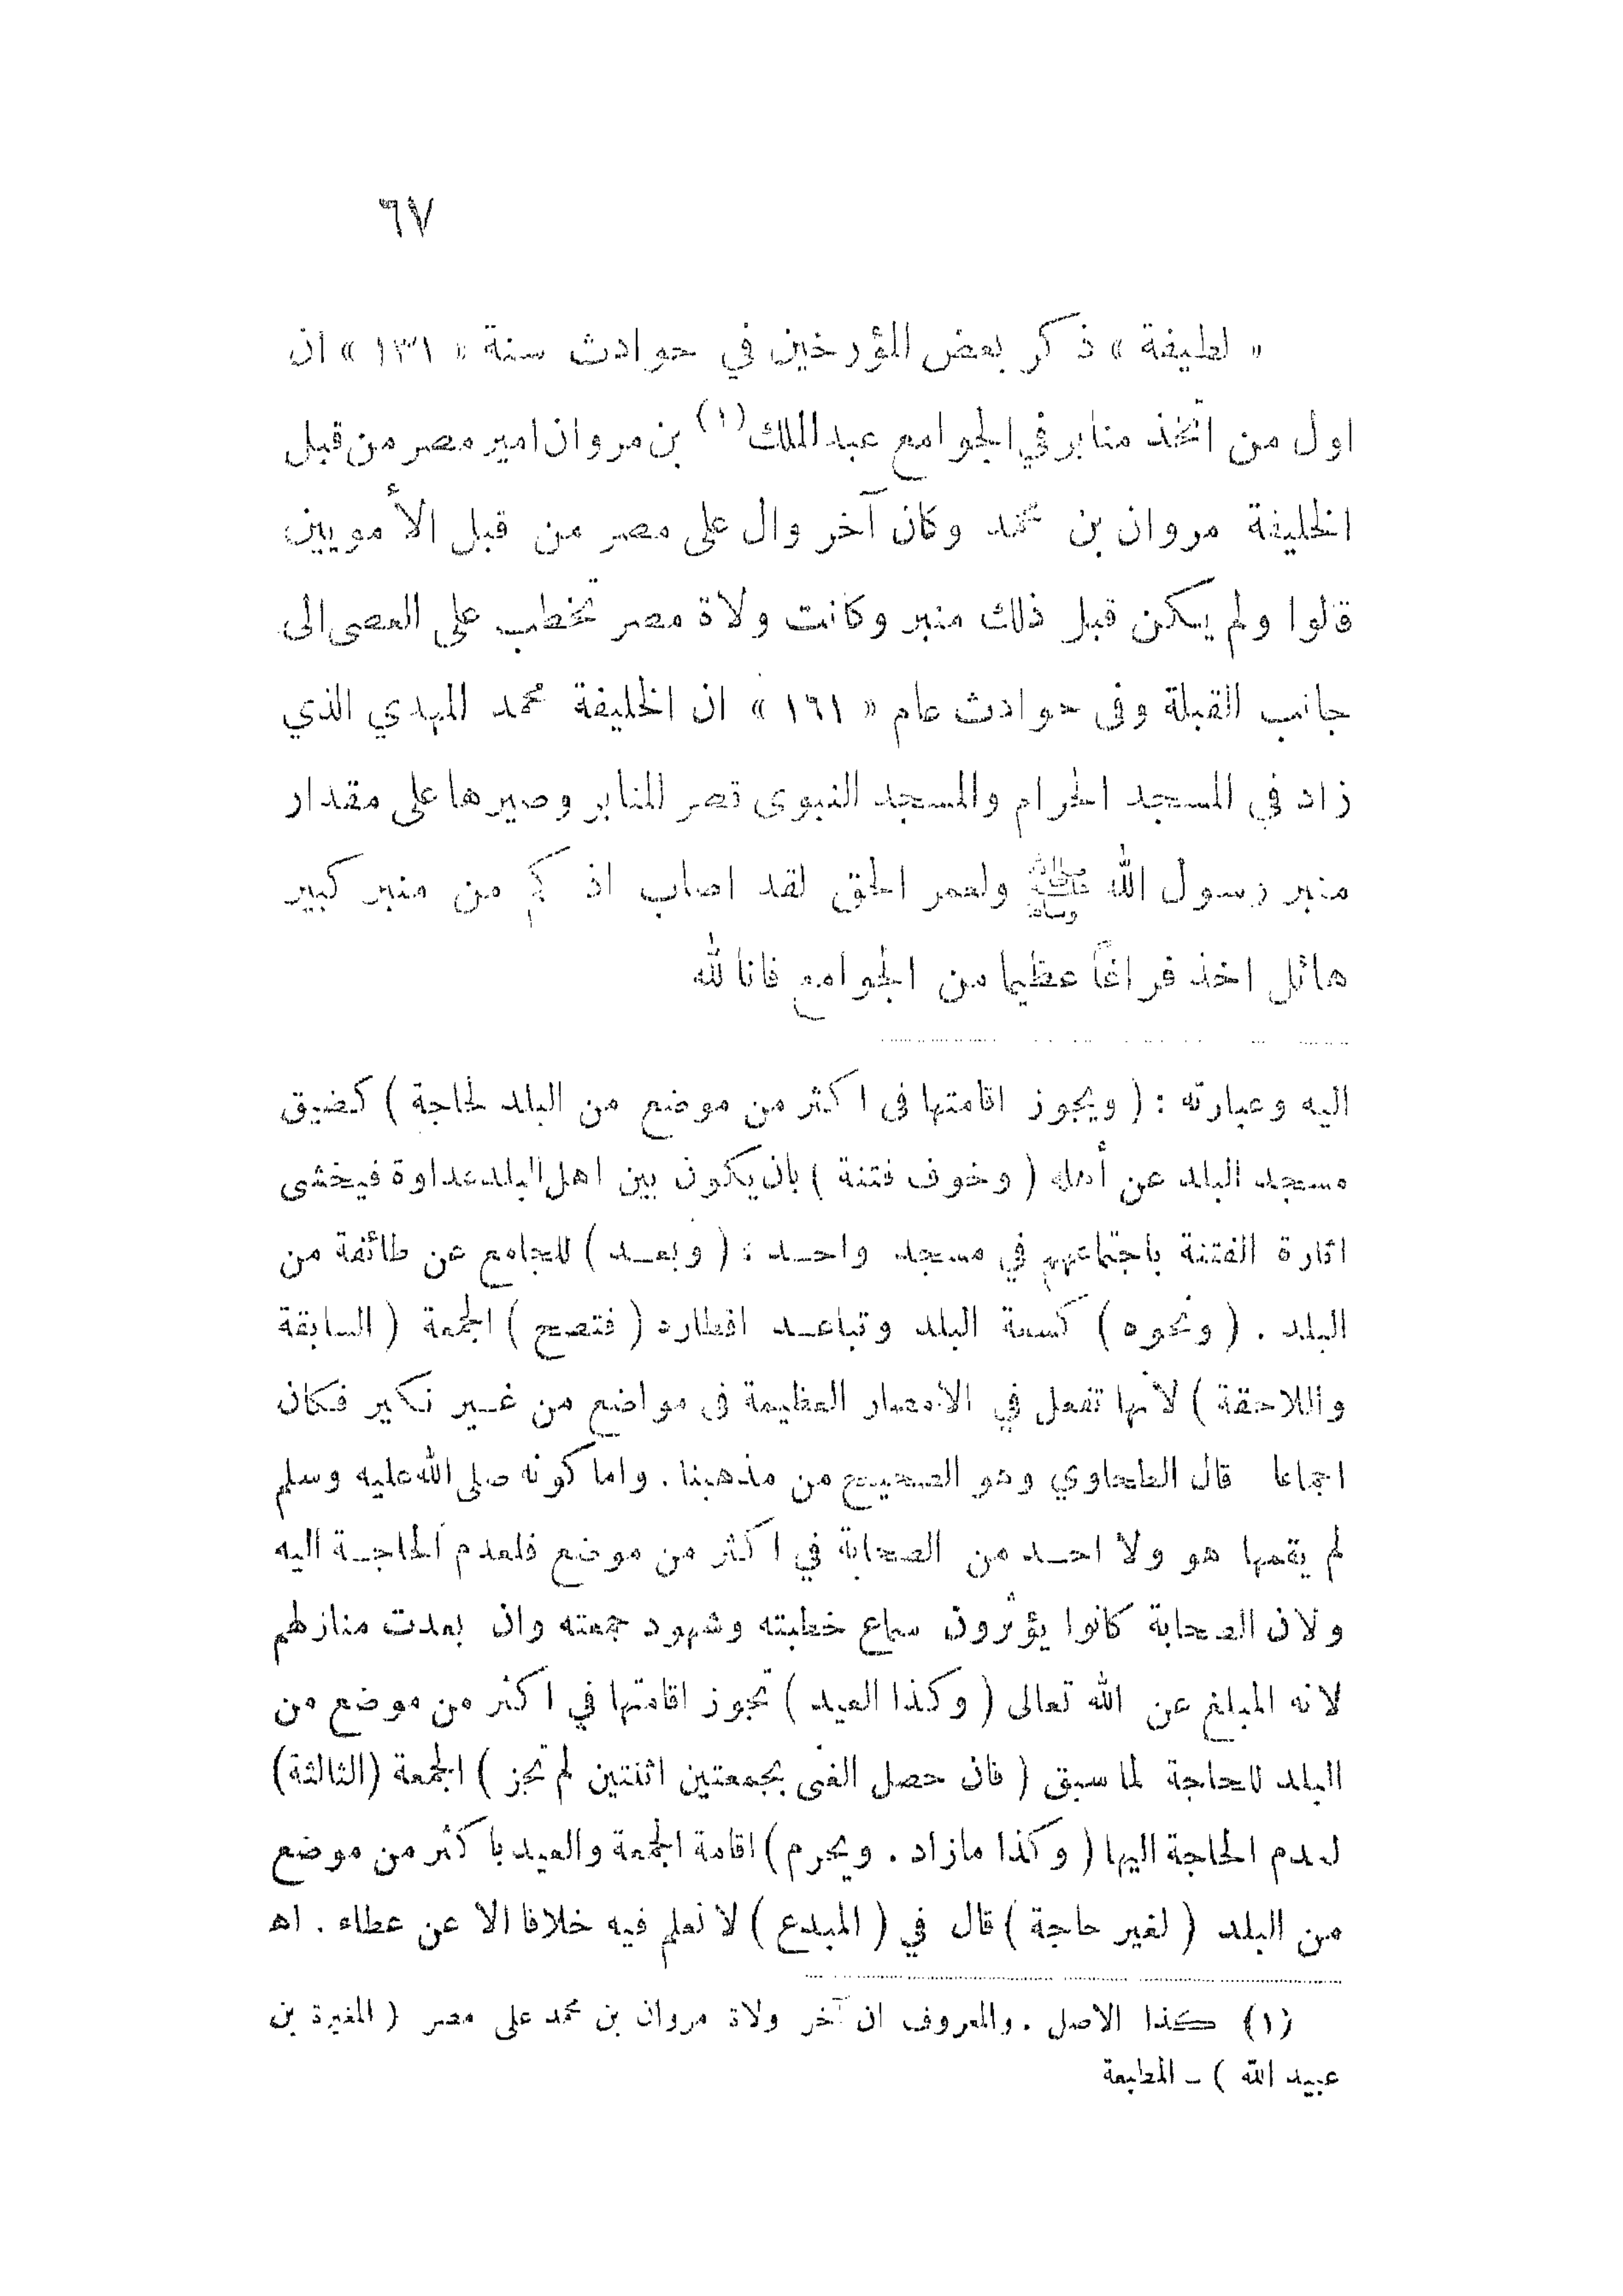 ٦٧
« لطيفة » ذكر بعض المؤرخين في حوادث سنة « ١٣١ » ان
اول من اتخذ منابر في الجوامع عبد الملك (١) بن مروان امير مصر من قبل
الخليفة مروان بن محمد وكان آخر وال على مصر من قبل الأمويين
قالوا ولم يكن قبل ذلك منبر وكانت ولاة مصر تخطب على العصى الى
جانب القبلة وفى حوادث عام « ١٦١ » ان الخليفة محمد المهدي الذي
زاد في المسجد الحرام والمسجد النبوى قصر المنابر وصيرها على مقدار
منبر رسول الله ﷺ ولعمر الحق لقد اصاب اذ كم من منبر كبير
هائل اخذ فراغاً عظيما من الجوامع فانا لله
اليه وعبارته : ( ويجوز اقامتها فى اكثر من موضع من البلد لحاجة ) كضيق
مسجد البلد عن أهله ( وخوف فتنة ) بان يكون بين اهل البلد عداوة فيخشى
اثارة الفتنة باجتماعهم في مسجد واحد : ( وبعد ) للجامع عن طائفة من
البلد . ( ونحوه ) كسعة البلد وتباعد اقطاره ( فتصح ) الجمعة ( السابقة
واللاحقة ) لأنها تفعل في الأمصار العظيمة فى مواضع من غير نكير فكان
اجماعا قال الطحاوي وهو الصحيح من مذهبنا . واما كونه صلى الله عليه وسلم
لم يقمها هو ولا احد من الصحابة في اكثر من موضع فلعدم الحاجة اليه
ولان الصحابة كانوا يؤثرون سماع خطبته وشهود جمعته وان بعدت منازلهم
لانه المبلغ عن الله تعالى ( وكذا العيد ) تجوز اقامتها في اكثر من موضع من
البلد للحاجة لما سبق ( فان حصل الغنى بجمعتين اثنتين لم تجز ) الجمعة (الثالثة)
لعدم الحاجة اليها ( وكذا مازاد . ويحرم ) اقامة الجمعة والعيد باكثر من موضع
من البلد ( لغير حاجة ) قال في ( المبدع ) لا نعلم فيه خلافا الا عن عطاء . اه
(١) كذا الاصل . والمعروف ان آخر ولاة مروان بن محمد على مصر ( المغيرة بن
عبيد الله ) ـ المطبعة